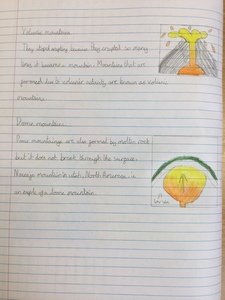 Volcanic mountains
They stoped erupting because they erupted so many
times it became a mountain. Mountains that are
formed due to volcanic activity are known as volcanic
mountains.
Dome mountains.
Dome mountains are also formed by molten rock
but it does not break through the surface.
Navajo mountain in utah, North America is
an example of a dome mountain.